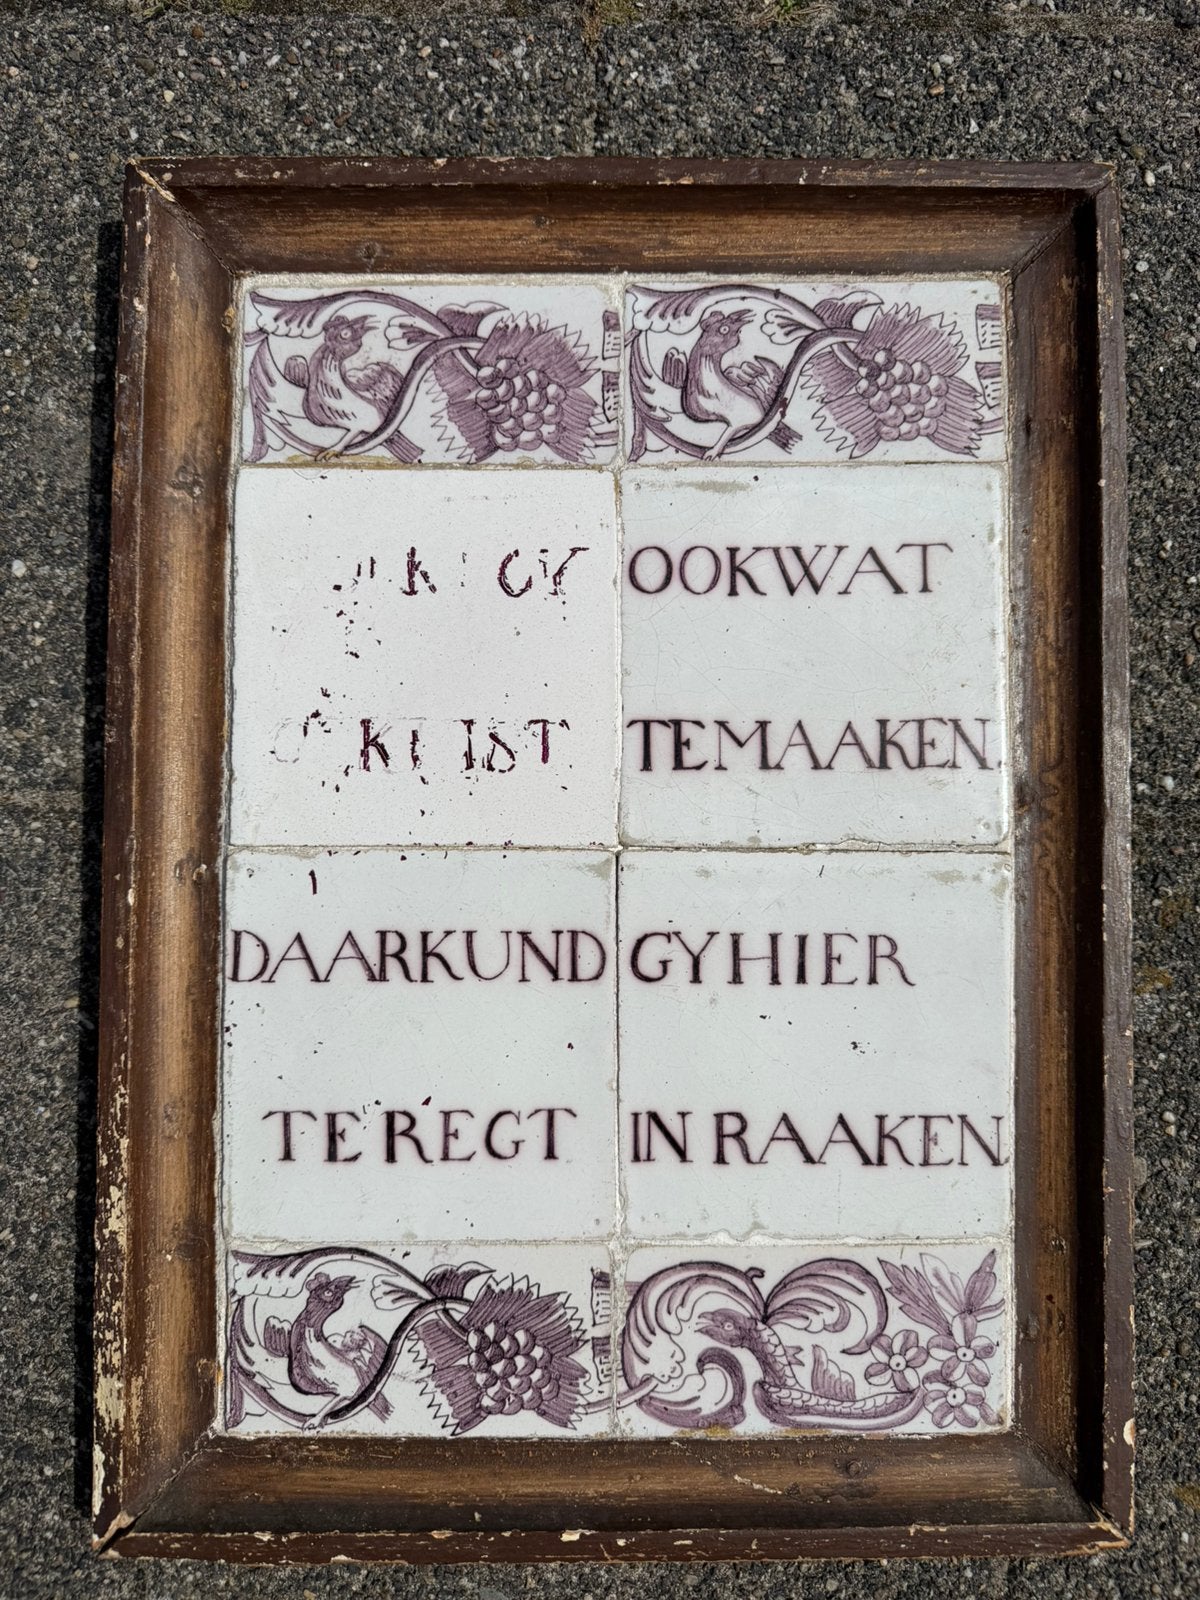 OOK WAT
IST TE MAAKEN.
DAAR KUND GY HIER
TE REGT IN RAAKEN.